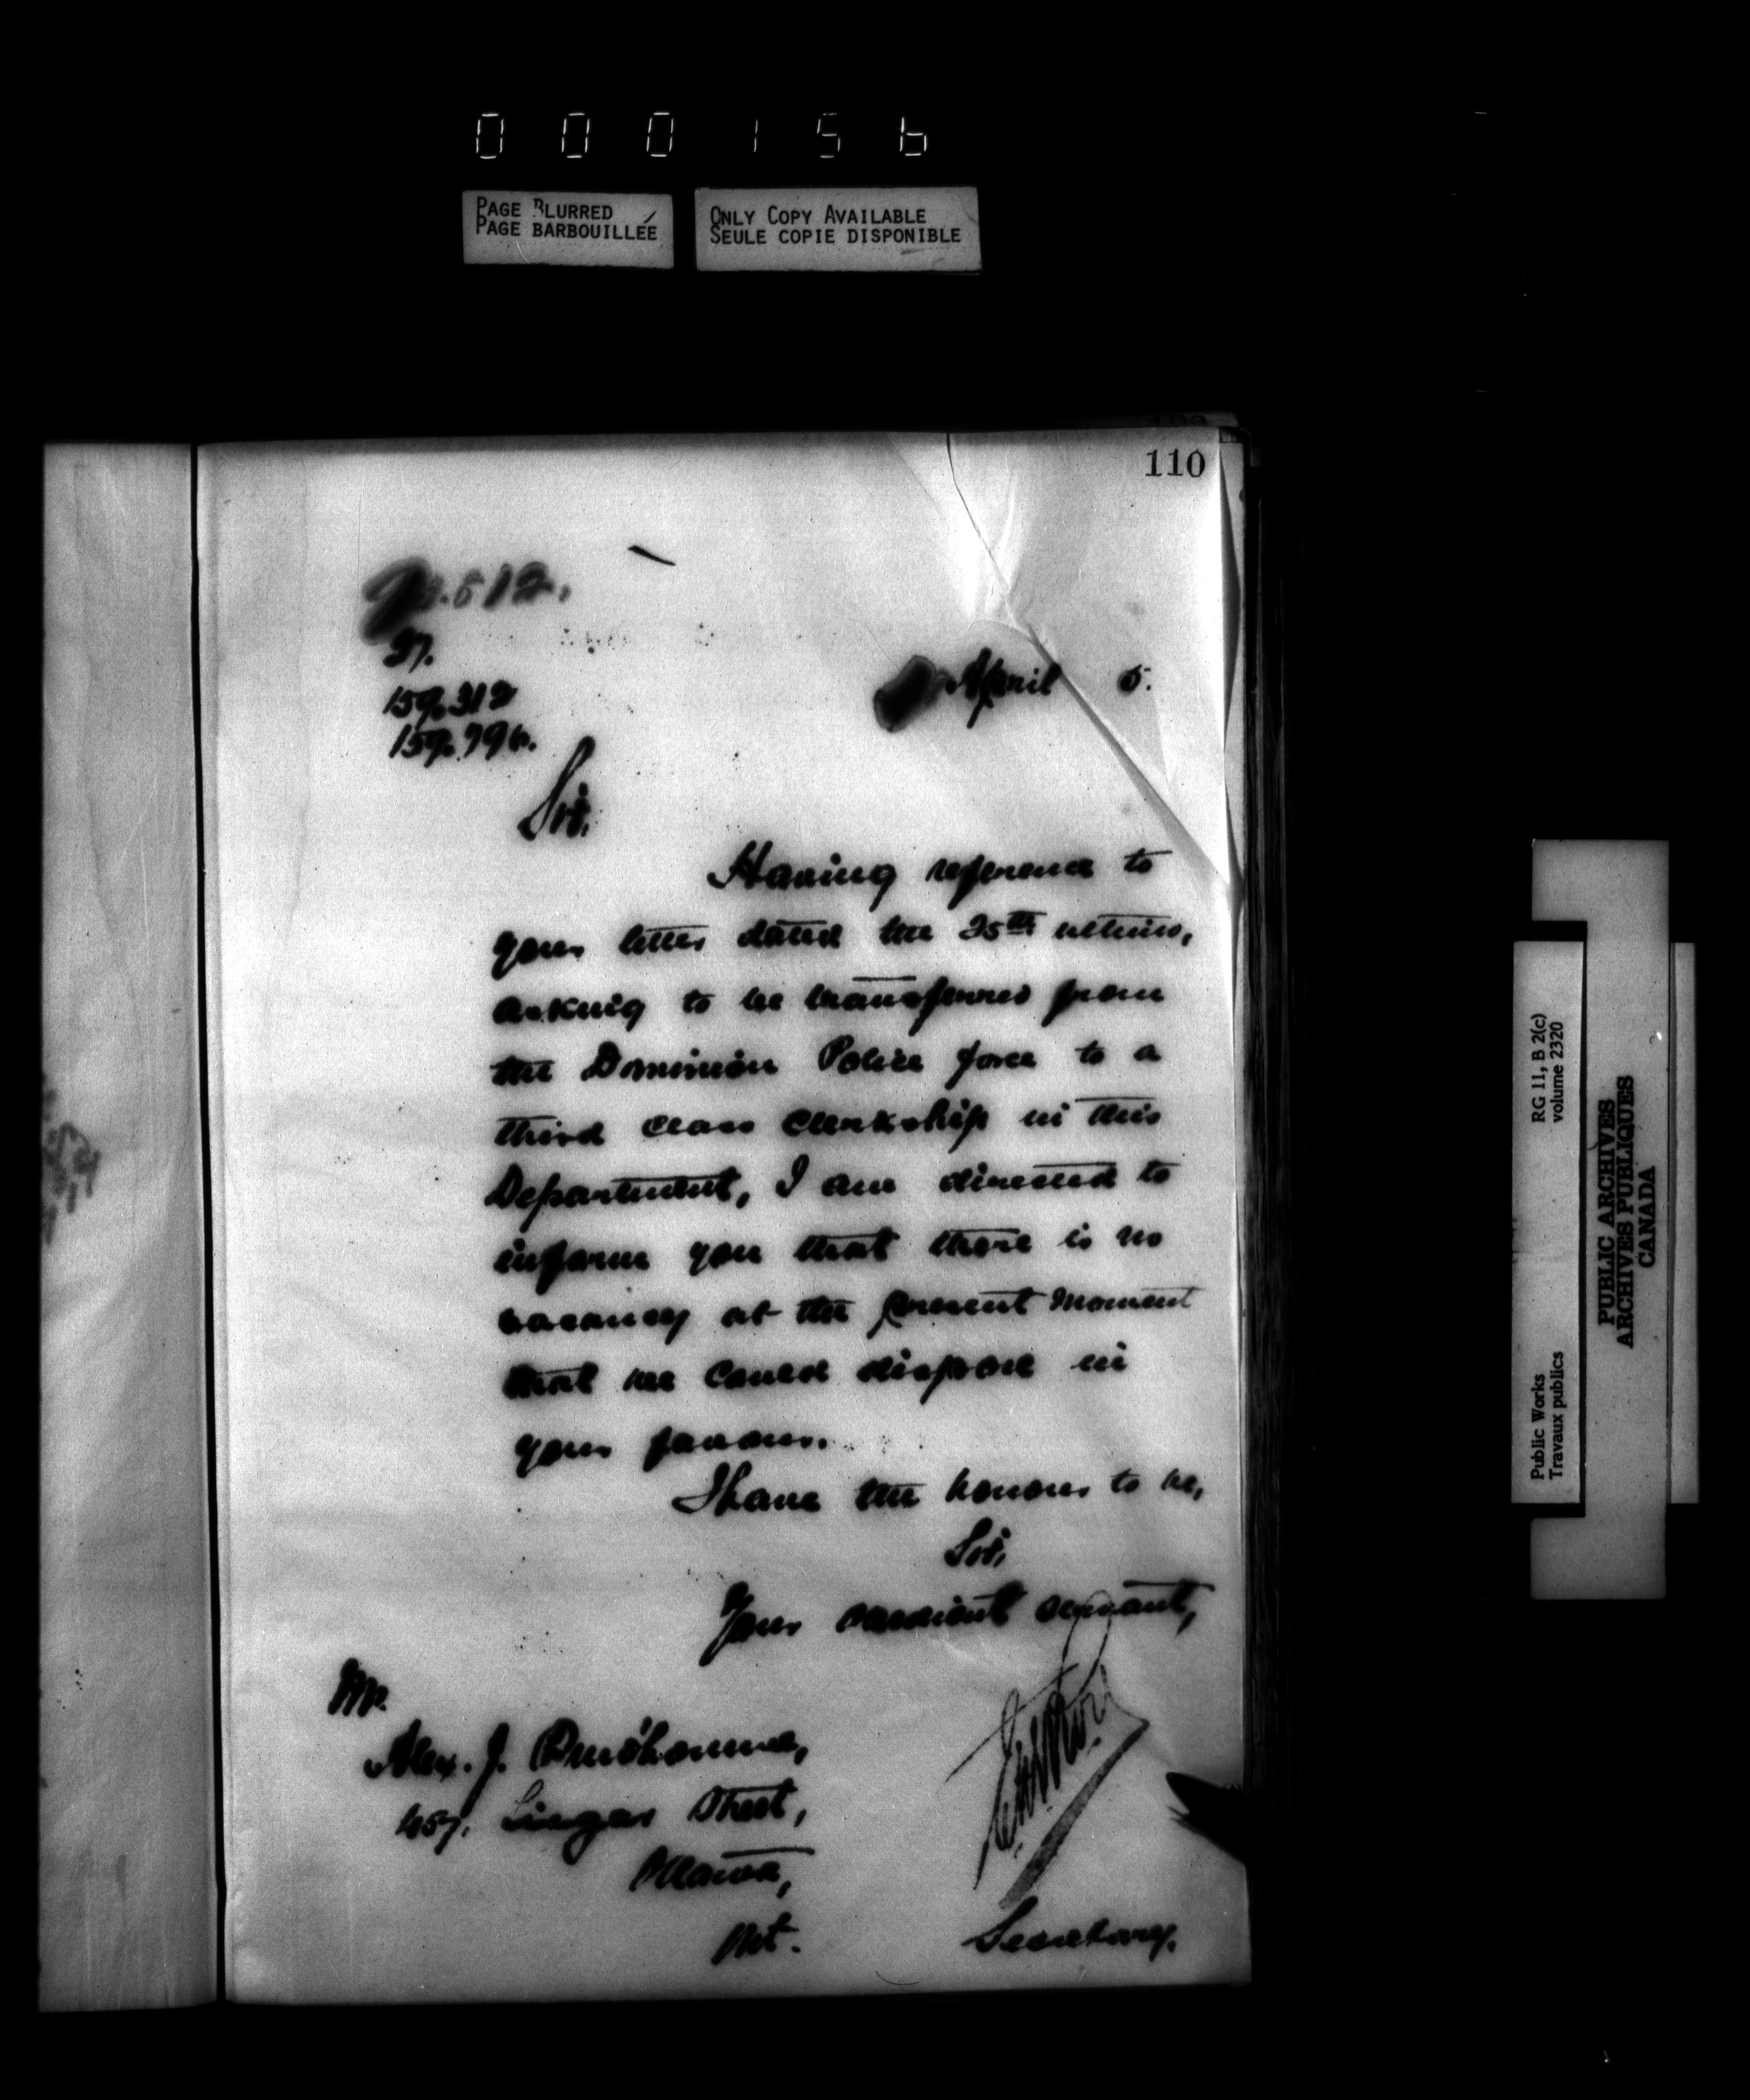 000156
PAGE BLURRED
PAGE BARBOUILLÉE
ONLY COPY AVAILABLE
SEULE COPIE DISPONIBLE
110
.512.
27.
159,312
April 5.
Sir,
Having reference to
your letter dated the 25th ultimo,
asking to be transferred from
the Dominion Police force to a
third class clerkship in this
Department, I am directed to
inform you that there is no
vacancy at the present moment
that we could dispose in
your favour.
I have the honour to be,
Sir,
Your obedient servant,
Mr.
Alex. J. Prud'homme,
457, Lisgar Street,
Ottawa,
Ont.
Secretary.
RG 11, B 2(c)
volume 2320
Public Works
Travaux publics
PUBLIC ARCHIVES
ARCHIVES PUBLIQUES
CANADA